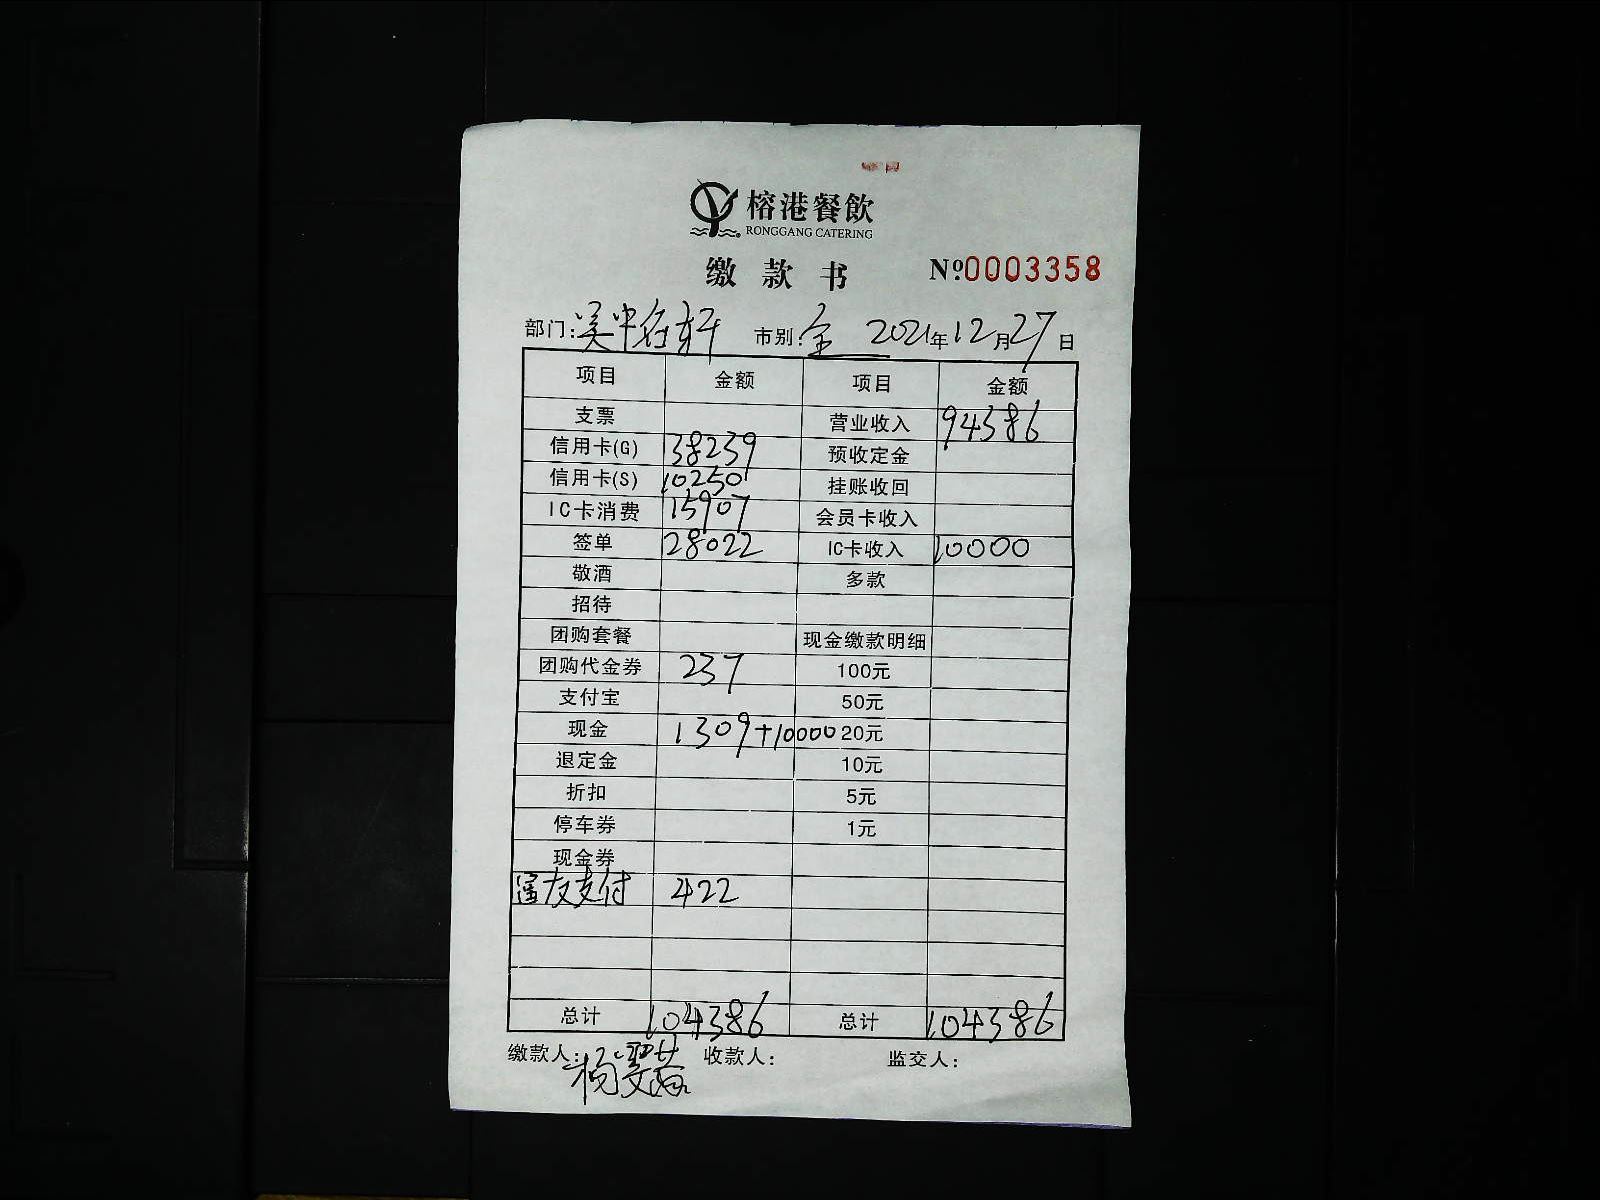 榕港餐飲
RONGGANG CATERING
缴款书 №0003358
部门: 吴中在轩 市别: 全 2021年12月27日
项目 金额 项目 金额
支票 营业收入 94386
信用卡(G) 38239 预收定金
信用卡(S) 10250 挂账收回
IC卡消费 15907 会员卡收入
签单 28022 IC卡收入 10000
敬酒 多款
招待
团购套餐 现金缴款明细
团购代金券 237 100元
支付宝 50元
现金 1309+10000 20元
退定金 10元
折扣 5元
停车券 1元
现金券
友支付 422
总计 104386 总计 104386
缴款人: 杨 收款人: 监交人: